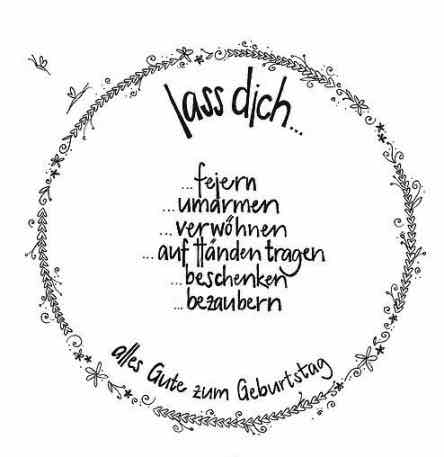 lass dich...
...feiern
...umarmen
...verwöhnen
...auf Händen tragen
...beschenken
...bezaubern
alles Gute zum Geburtstag